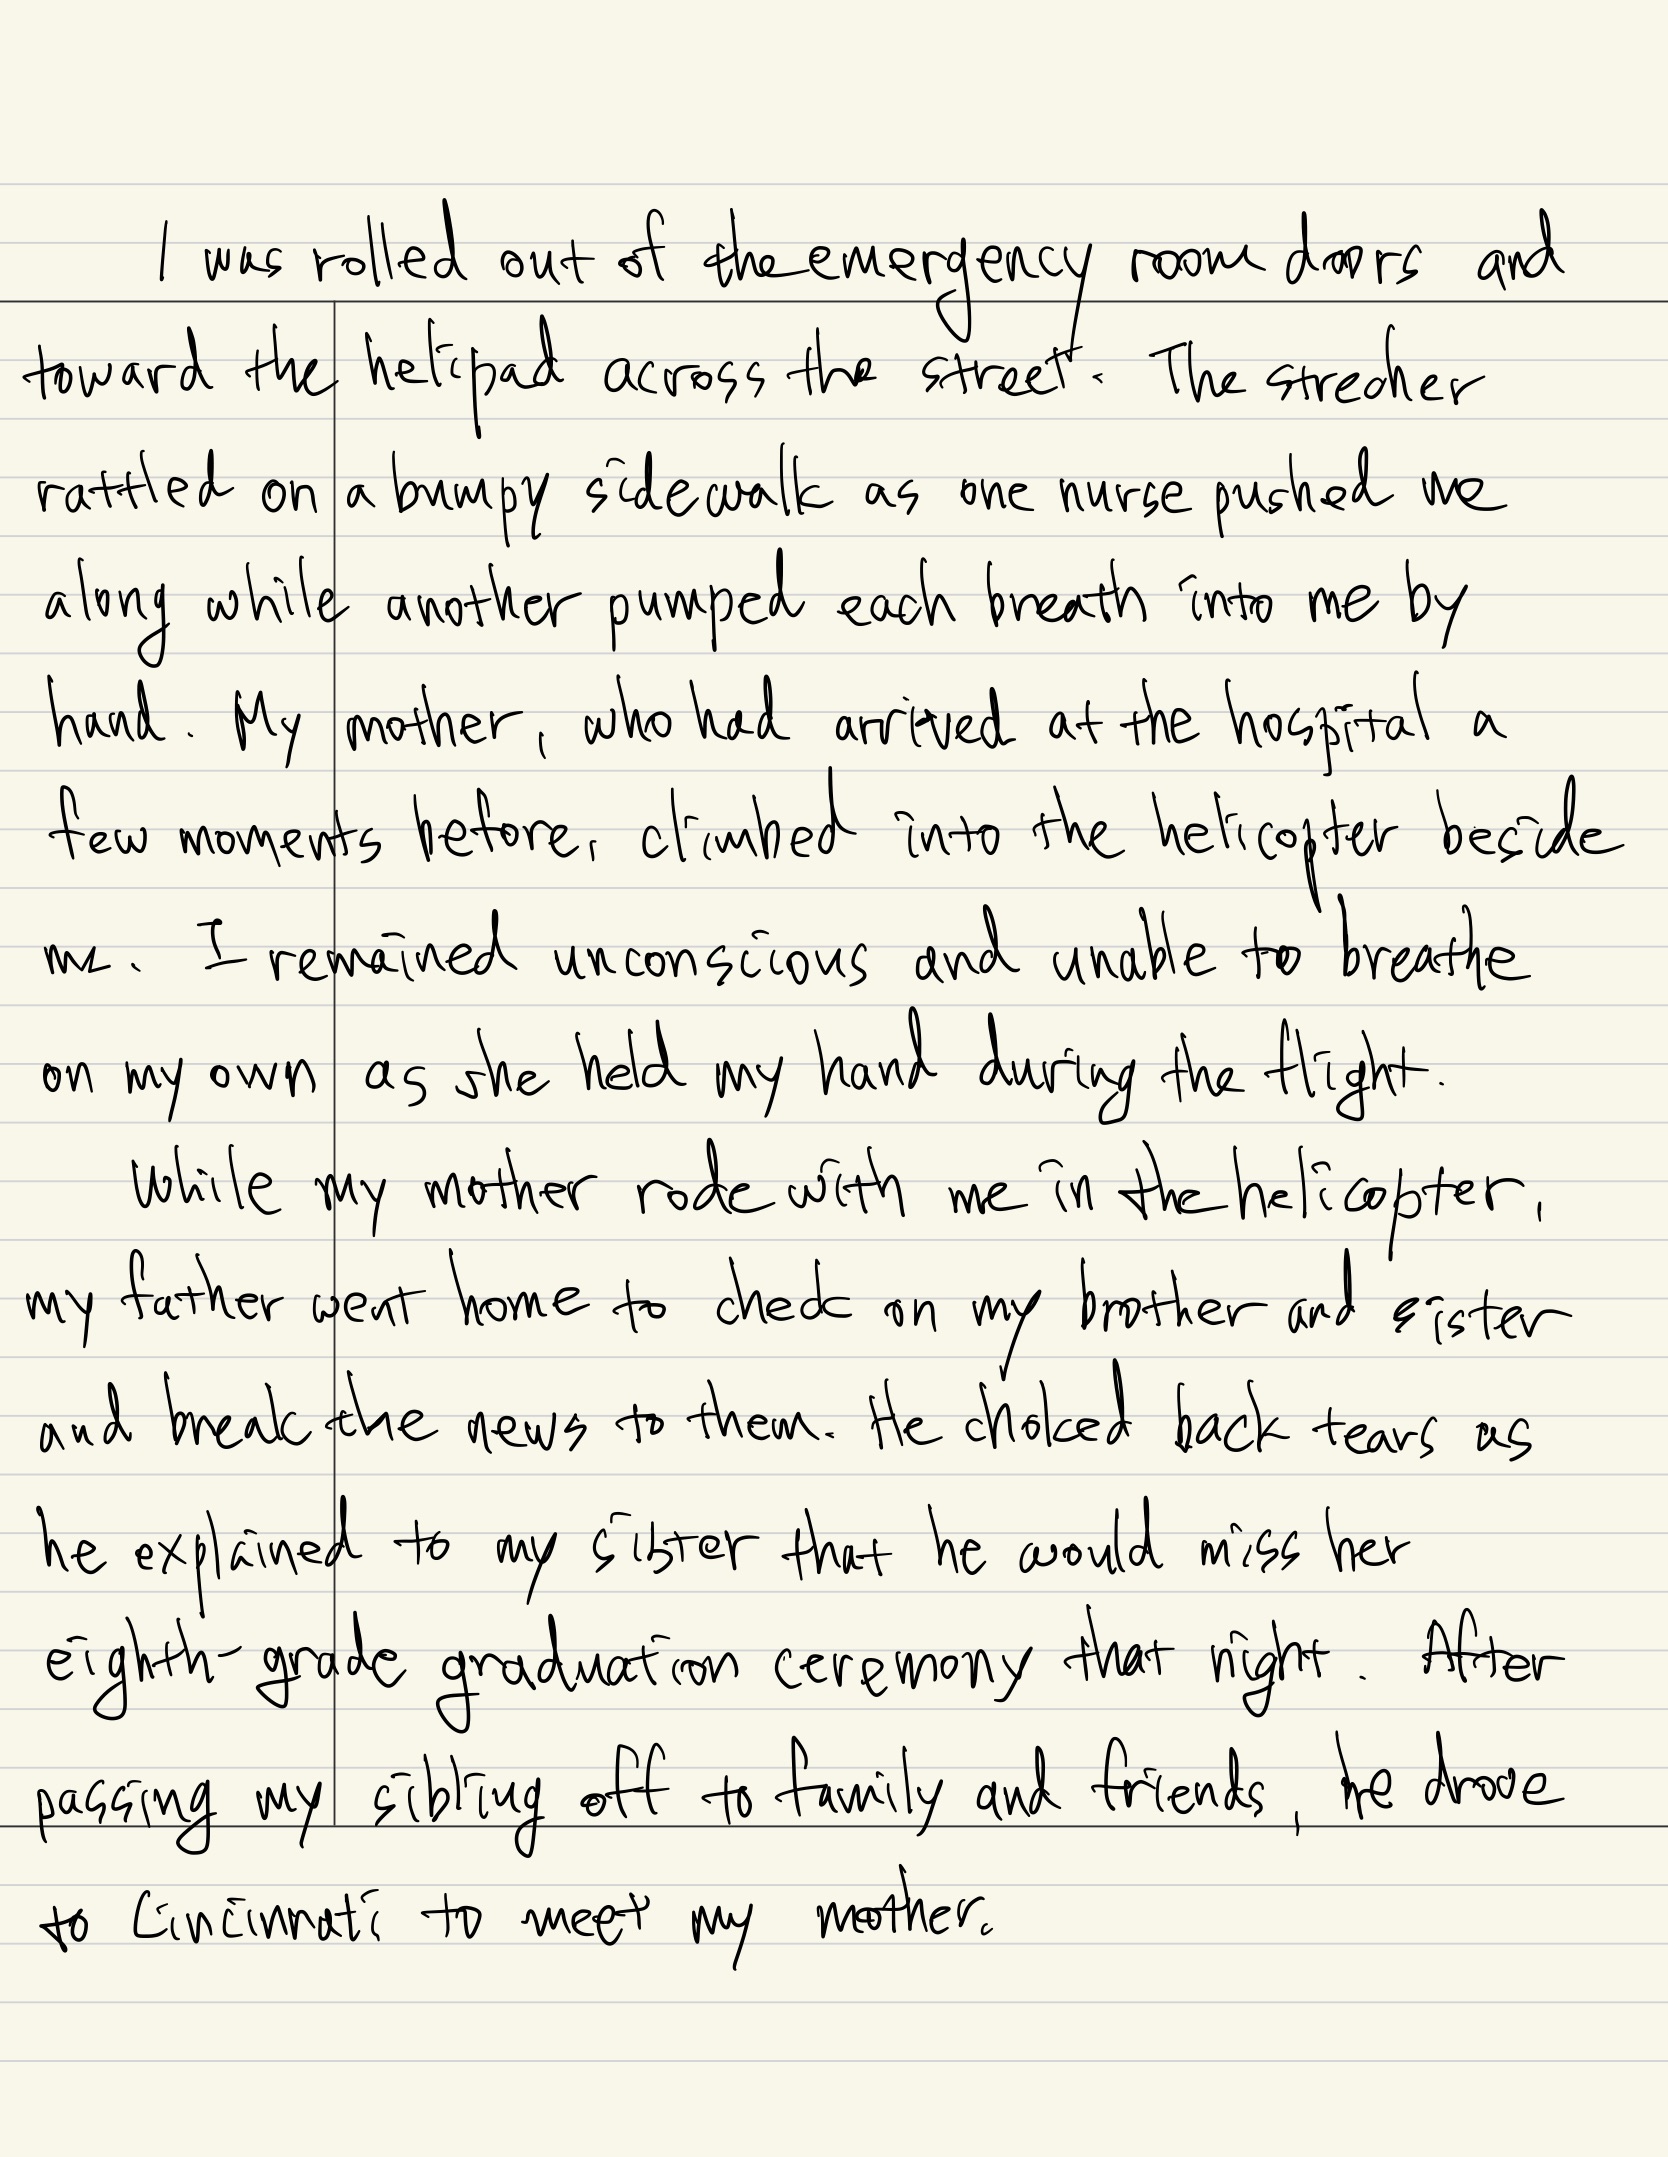 I was rolled out of the emergency room doors and
toward the helipad across the street. The strecher
rattled on a bumpy sidewalk as one nurse pushed me
along while another pumped each breath into me by
hand. My mother, who had arrived at the hospital a
few moments before, climbed into the helicopter beside
me. I remained unconscious and unable to breathe
on my own as she held my hand during the flight.
While my mother rode with me in the helicopter,
my father went home to check on my brother and sister
and break the news to them. He choked back tears as
he explained to my sibster that he would miss her
eighth-grade graduation ceremony that night. After
passing my sibling off to family and friends, he drove
to Cincinnati to meet my mother.